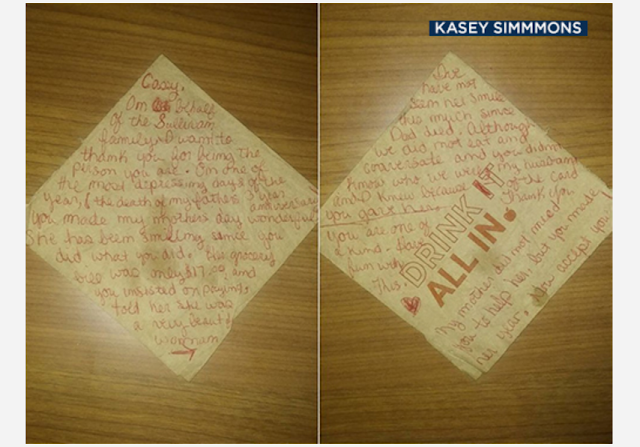 KASEY SIMMMONS
Casey,
On behalf
of the Sullivan
family I want to
thank you for being the
person you are. On one of
the most depressing days of the
year, (the death of my fathers 3 year anniversary)
you made my mothers day wonderful
She has been smiling since you
did what you did. The grocery
bill was only $17.00 and
you insisted on paying
told her she was
a very beautiful
woman
I've
have not
seen her smile
this much since
Dad died. Although
we did not eat and
conversate and you didn't
know who we were my husband
and I knew because of the card
you gave her. Thank you
You are one of
a kind. 
him why
this.
DRINK IT
ALL IN.
My mother did not need
you to help her but you made
her year. you accept you